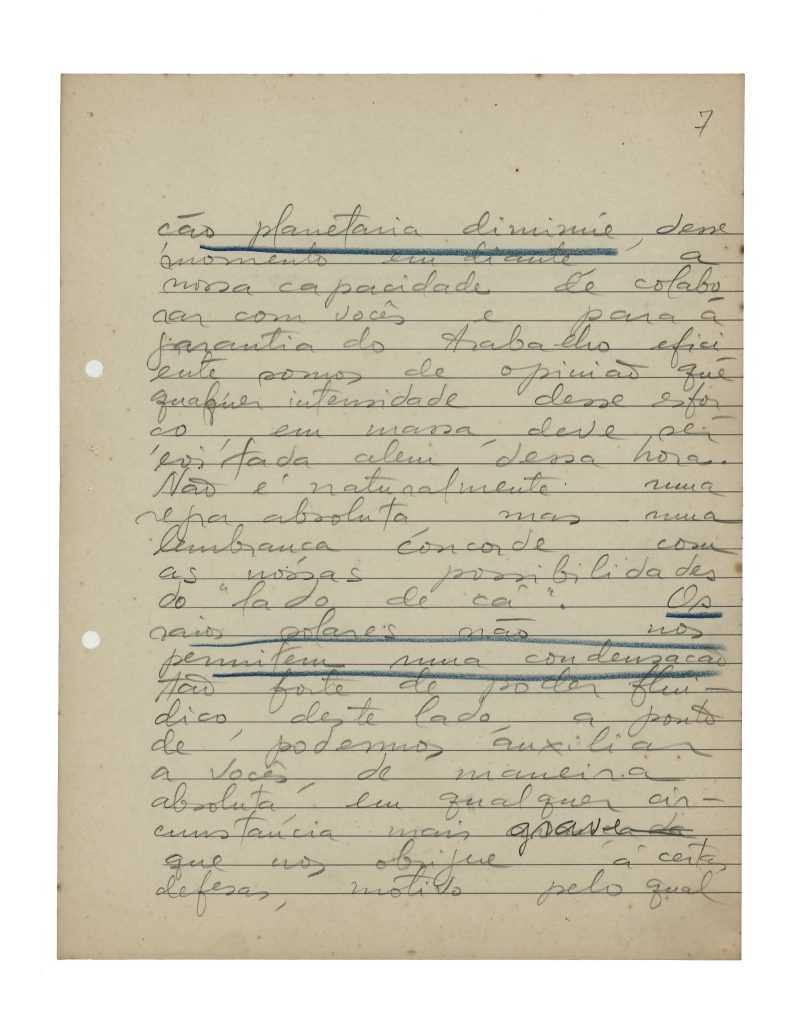 7
ção planetaria diminúe, desse
momento em diante, a
nossa capacidade de colabo
rar com vocês e para á
garantia do trabalho efici
ente somos de opinião que
qualquer intensidade desse esfor
ço, em massa, deve ser
evitada alem dessa hora.
Não é naturalmente uma
regra absoluta mas uma
lembrança concorde com
as nossas possibilidades
do "lado de cá". Os
raios solares não nos
permitem uma condensação
tão forte de poder fluí-
dico, deste lado a ponto
de podermos auxiliar
a vocês, de maneira
absoluta, em qualquer cir-
cunstância mais grave
que nos obrigue á certas
defesas, motivo pelo qual